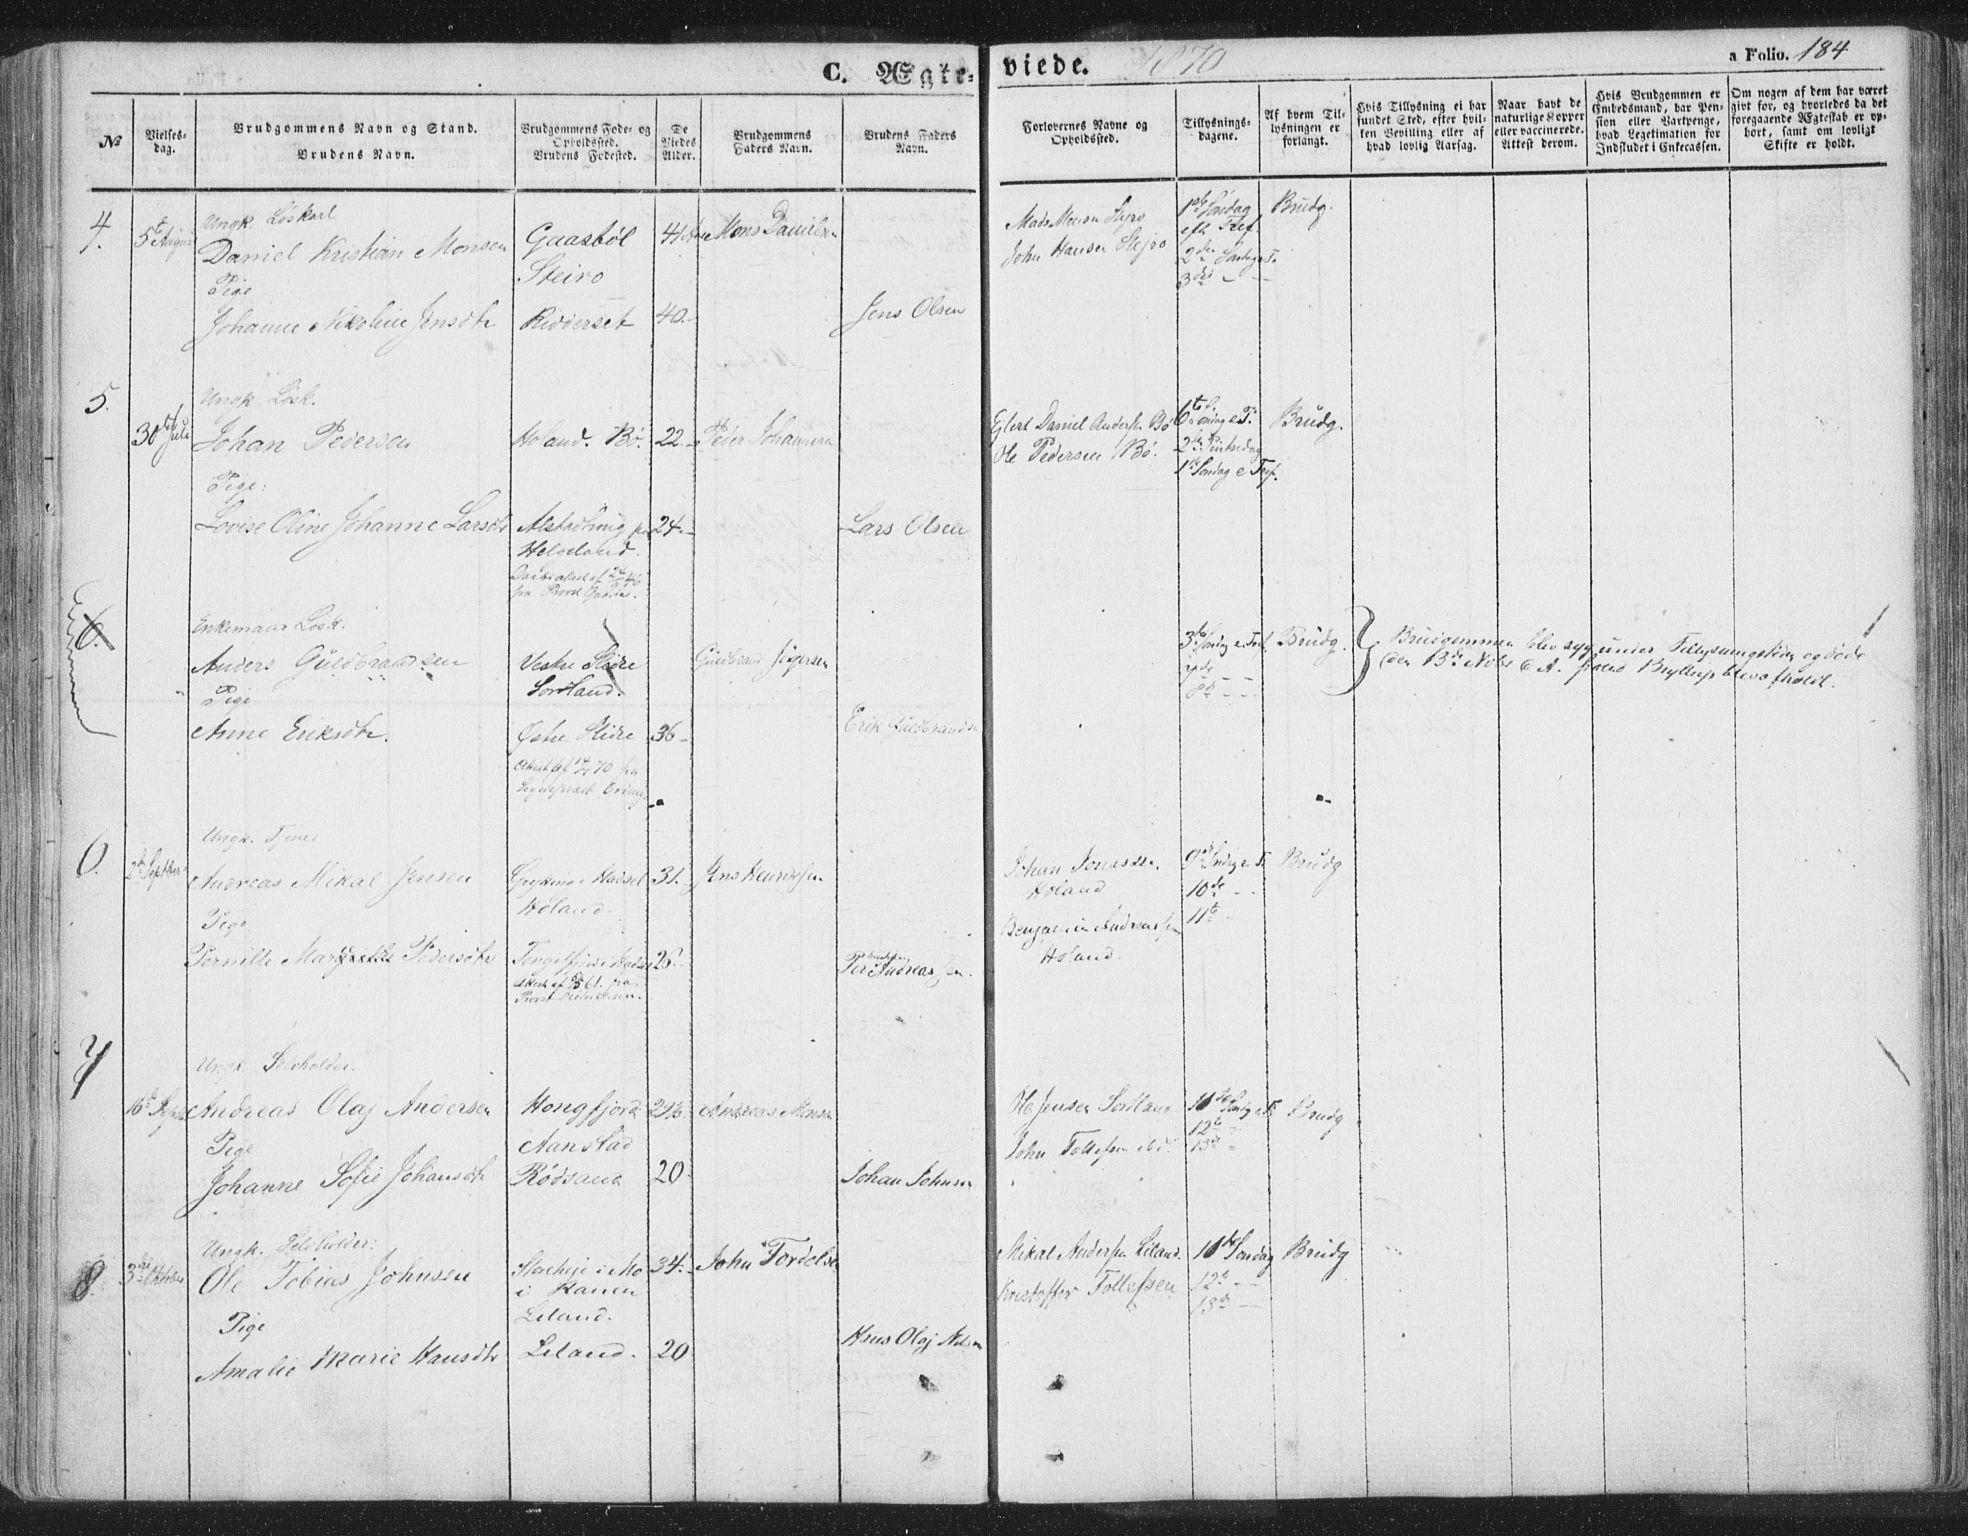 C. Ægte-
viede. 1870
a Folio. 184
№
Vielses-
dag.
Brudgommens Navn og Stand.
Brudens Navn.
Brudgommens Føde- og
Opholdssted.
Brudens Fødested.
De
Viedes
Alder.
Brudgommens
Faders Navn.
Brudens Faders
Navn.
Forlovernes Navne og
Opholdssted.
Tillysnings-
dagene.
Af hvem Til-
lysningen er
forlangt.
Hvis Tillysning ei har
fundet Sted, efter hvil-
ken Bevilling eller af
hvad lovlig Aarsag.
Naar havt de
naturlige Kopper
eller vaccinerede.
Attest derom.
Hvis Brudgommen er
Embedsmand, har Pen-
sion eller Vartpenge,
hvad Legitimation for
Indskudet i Enkecassen.
Om nogen af dem har været
givt for, og hvorledes da det
foregaaende Ægteskab er op-
hørt, samt om lovligt
Skifte er holdt.
4.
5te August
Ungk. Løskarl
Daniel Kristian Monsen
Pige
Johanne Nikoline Jensdtr
Gaasbøl
Steiro
Ridderset
41
40
Mons Danielsen
Jens Olsen
John Hansen Stejro
1ste Søndag
eft Tref
2den Søndag e T.
3die
Brudg.
5.
30te Juli
Ungk. Løsk.
Johan Pedersen
Pige:
Lovise Oline Johanne Larsdtr
Holand. Bø.
Alstadhoug paa
Helgeland.
22
24
Peder Johannesen
Lars Olsen
Ejlert Daniel Anders. Bø
Ole Pedersen Bø.
6te S. e. T.
2den Pintsedag
1ste Søndag e Tref.
Brudg.
6.
Enkemand Løsk.
Anders Guldbrandsen
Pige
Anne Eriksdtr.
Vestre Slidre
Sortland.
Østre Slidre
36
Guldbrand
Erik Guldbrands.
3die Søndag e. Tref.
Brudg.
Brudgommen blev syg under Tillysningstiden og døde
den 13de Novbr d. A. førend Bryllup blev afholdt.
6.
2den Septbr
Ungk. Tjener
Andreas Mikal Jensen
Pige
Pernille Margrethe Pedersdtr
Hadsel
Holand.
31.
26.
Jens Henriksen
Peder Andreas
Johan Jonassen
Holand
Benjamin Andreassen
Holand.
9de Søndag e. T.
10de
11te
Brudg
7
16de Septbr
Ungk Selvholder.
Andreas Olaj Andersen
Pige
Johanne Sofie Johansdtr
Hongfjord
Aanstad
Rødsand
20
Andreas Monsen
Johan Johnsen
Ole Jensen Sortland
John Tollefsen ibd.
11te Søndag e. T.
12te
13de
Brudg
8.
3die Oktober
Ungk. Selvholder:
Ole Tobias Johnsen
Pige
Amalie Marie Hansdtr
i Mo
i Ranen
Leland.
Leland.
34.
20
John Tordels.
Hans Olaj Nilsen
Mikal Andersen Leland.
Kristoffer Tollefsen
11te Søndag
12te
13de
Brudg